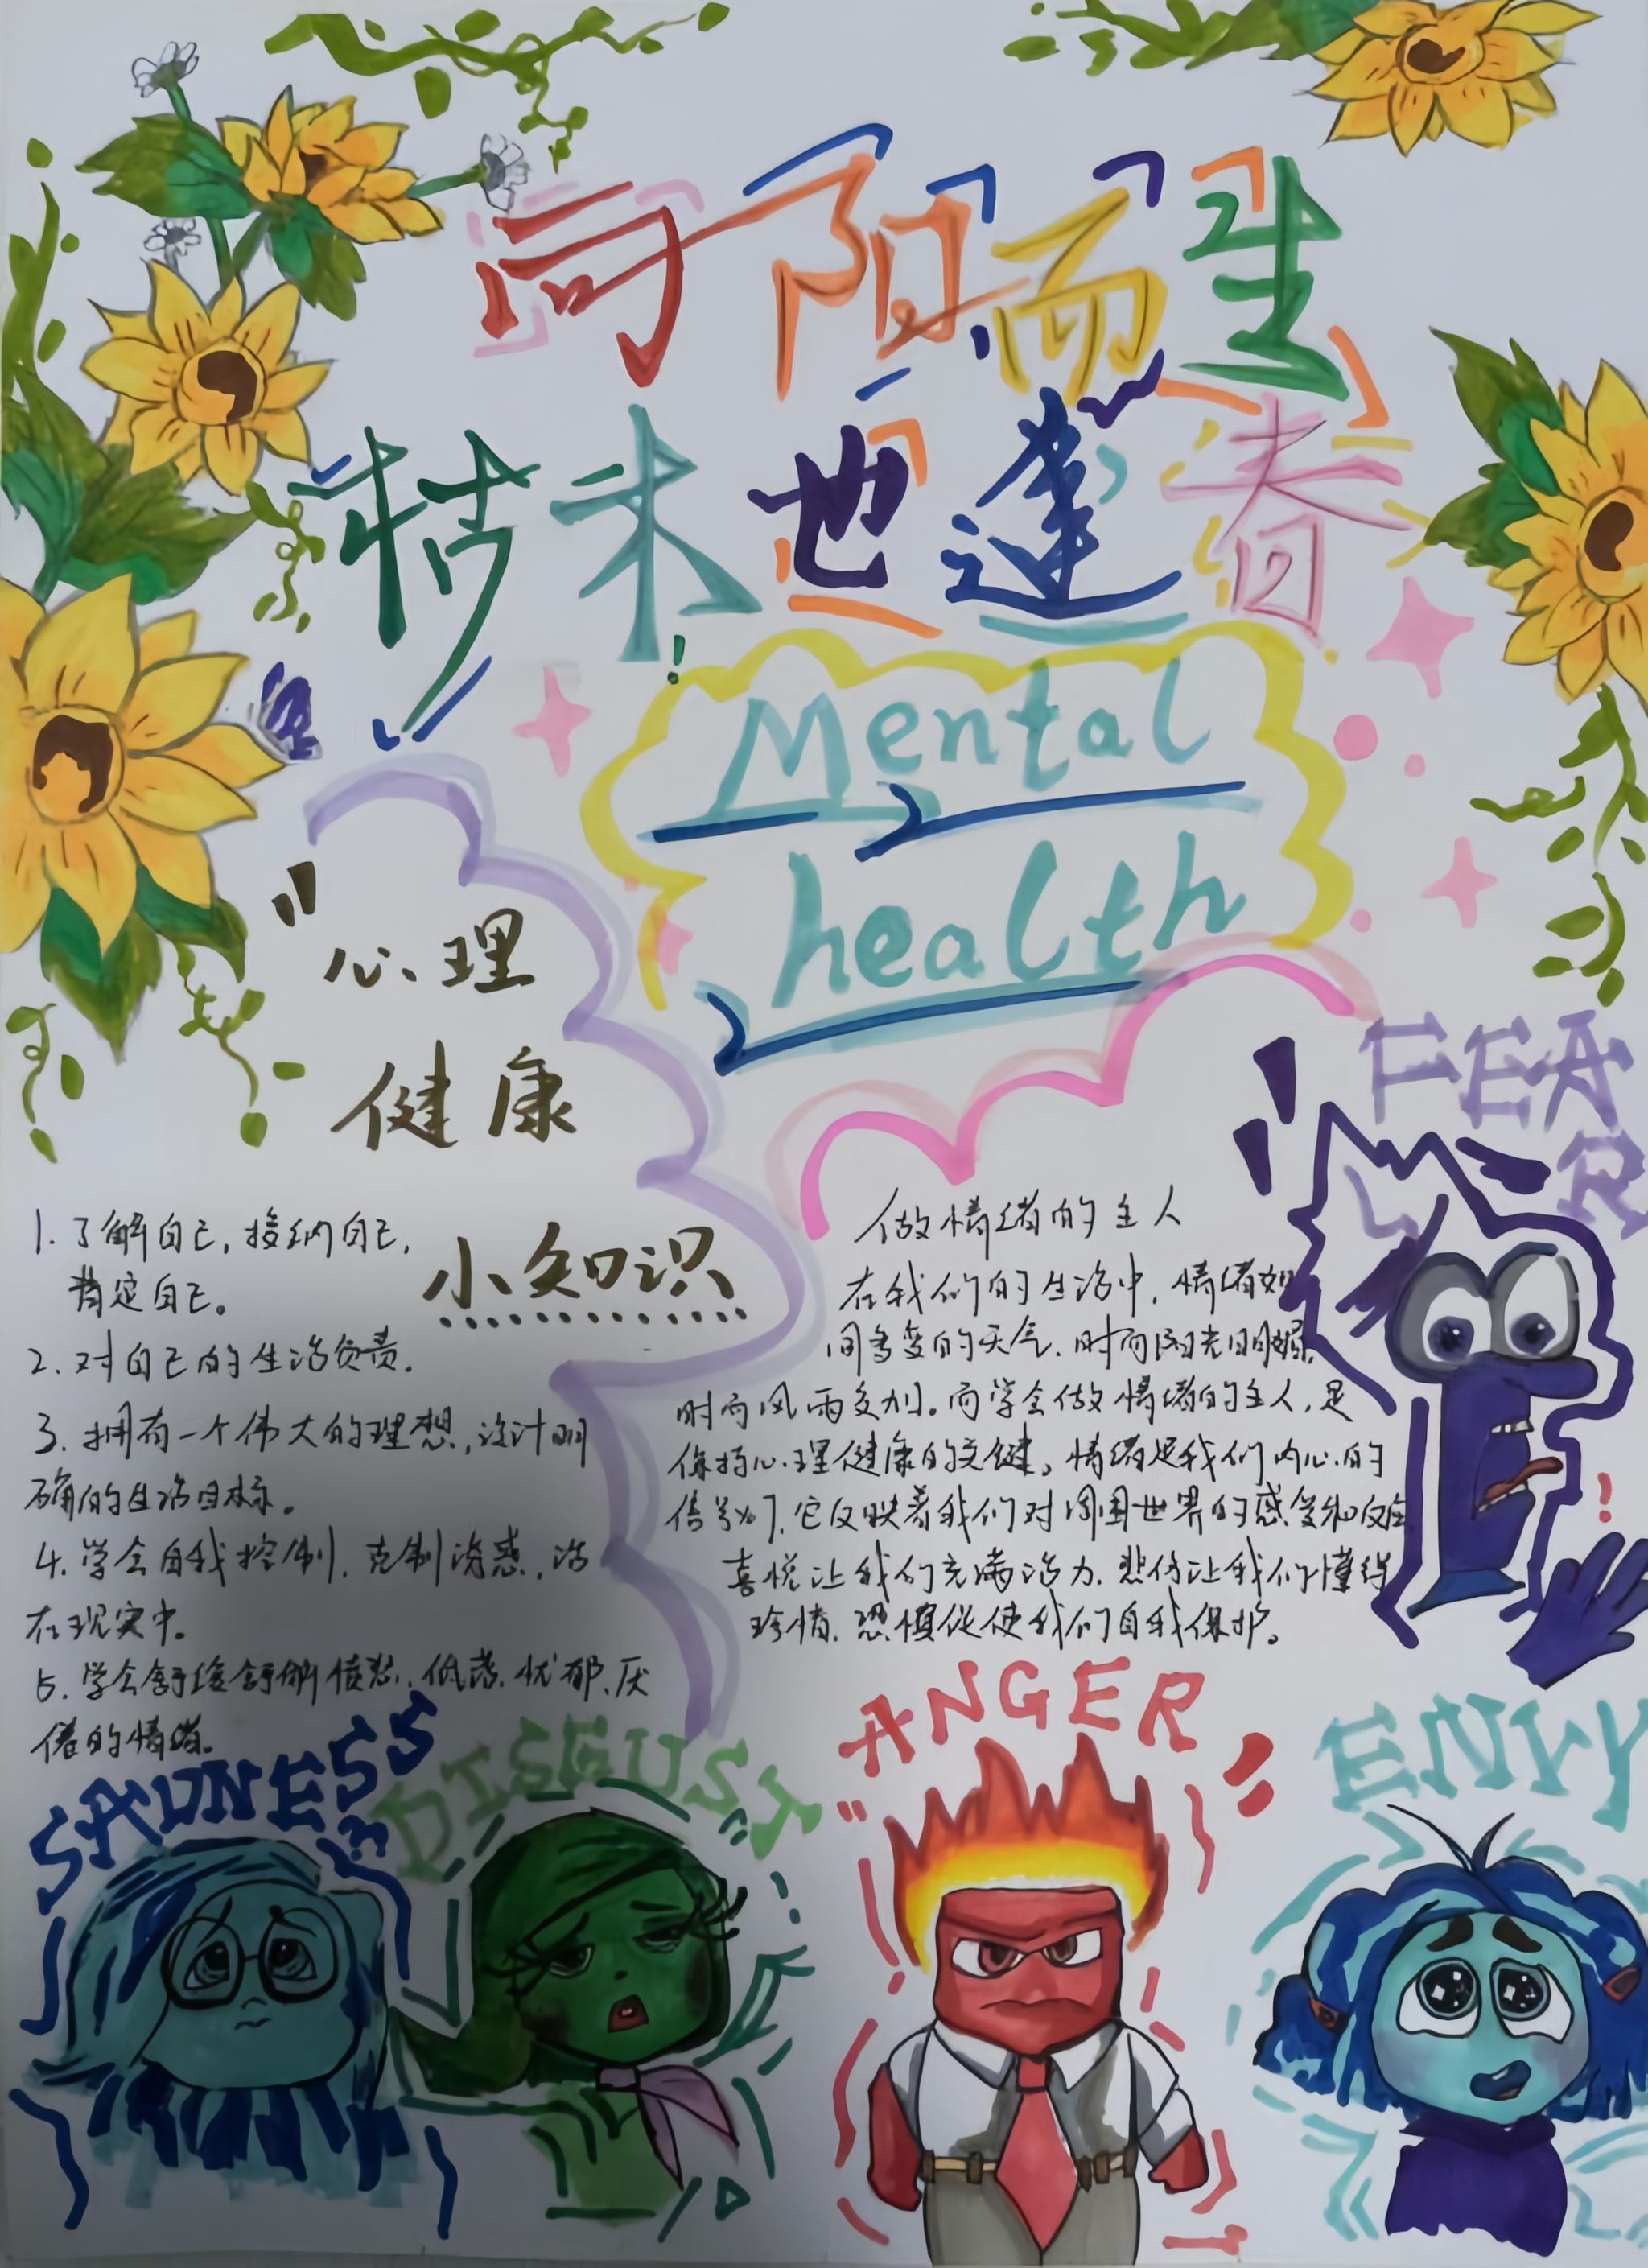 向阳而生
枯木也逢春
Mental
health
"心理
健康
小知识
1. 了解自己,接纳自己,
肯定自己。
2. 对自己的生活负责。
3. 拥有一个伟大的理想,设计明
确的生活目标。
4. 学会自我控制,克制诱惑,活
在现实中。
5. 学会舒缓舒解愤怒、低落、忧郁、厌
倦的情绪。
FEA
R
做情绪的主人
在我们的生活中,情绪如
同多变的天气,时而阳光明媚,
时而风雨交加。而学会做情绪的主人,是
保持心理健康的关键。情绪是我们内心的
信号灯,它反映着我们对周围世界的感受和反应
喜悦让我们充满活力,悲伤让我们懂得
珍惜,恐惧促使我们自我保护。
SADNESS
DISGUST
ANGER
ENVY